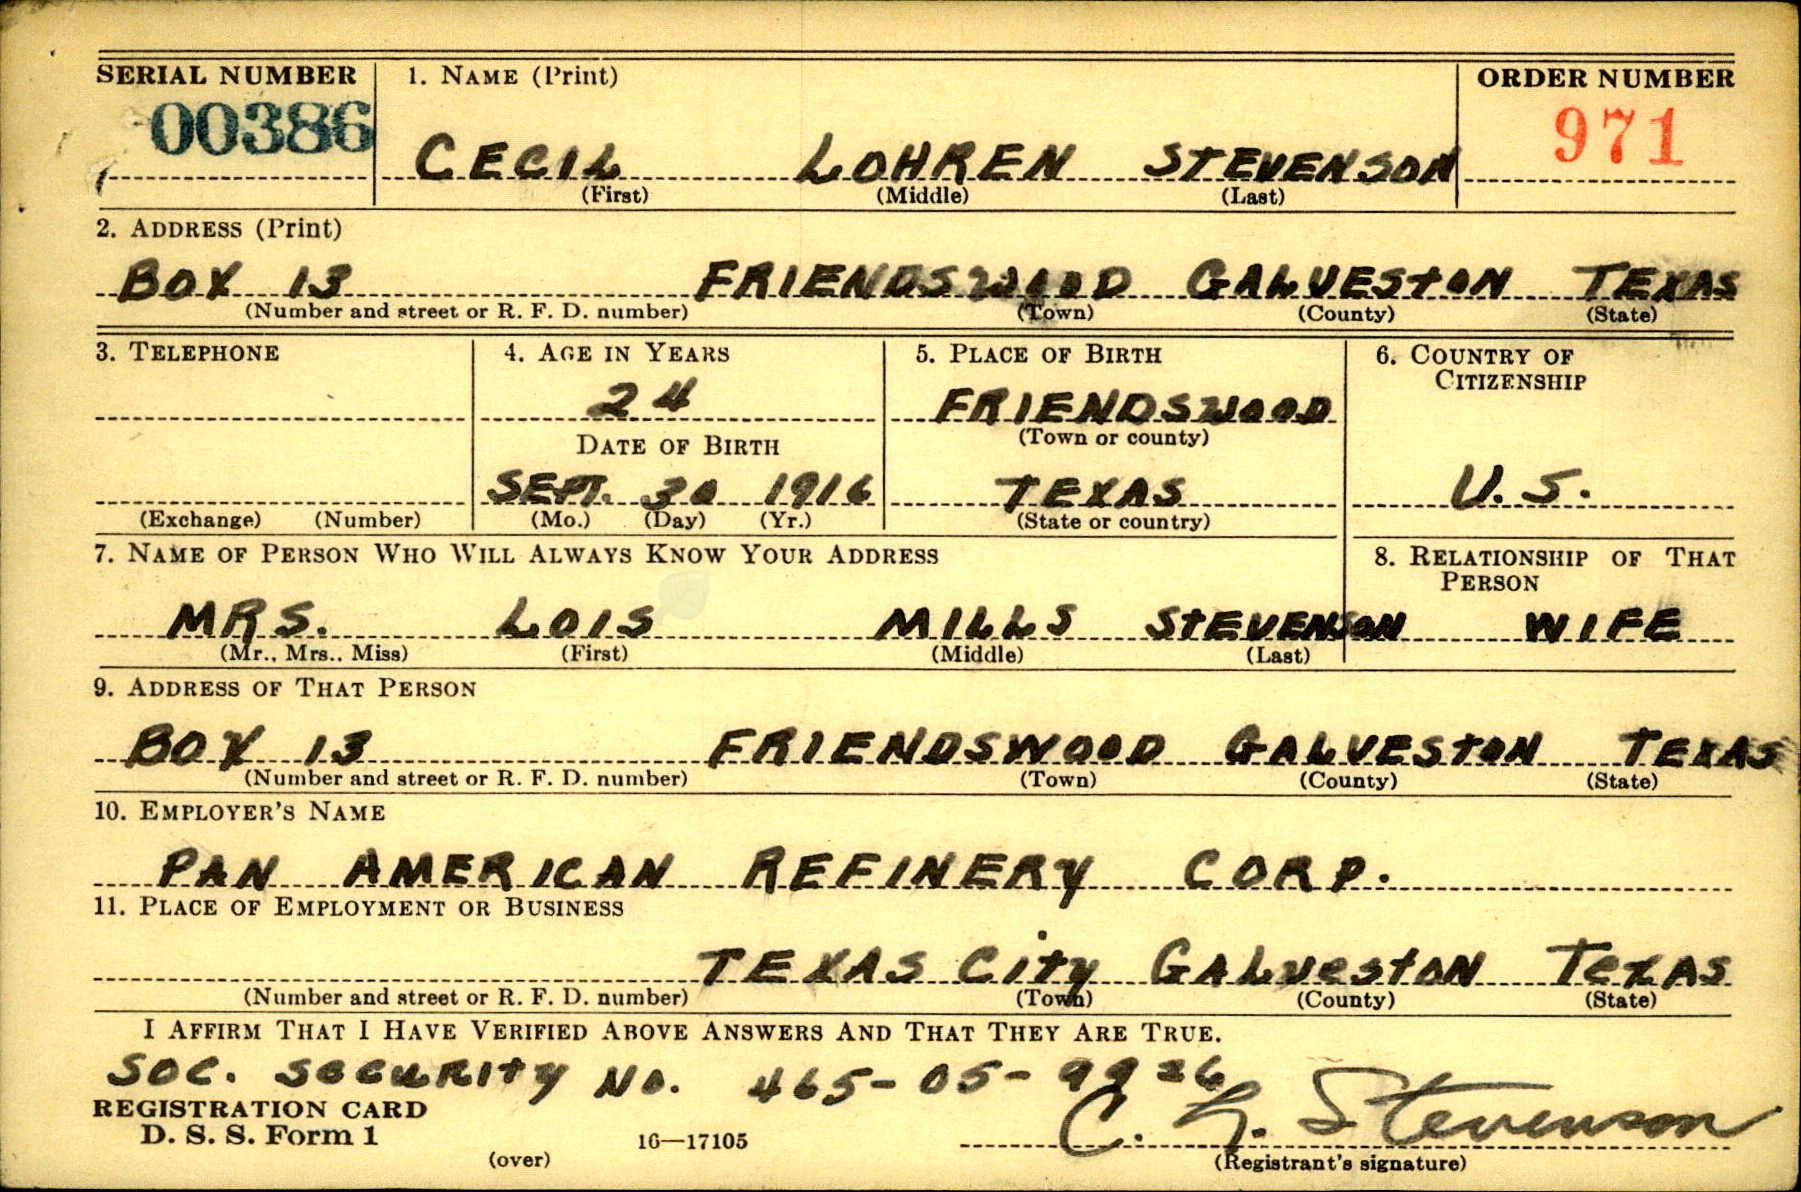 SERIAL NUMBER 1. NAME (Print) ORDER NUMBER
00386 971
CECIL LOHREN STEVENSON
(First) (Middle) (Last)
2. ADDRESS (Print)
BOX 13 FRIENDSWOOD GALVESTON TEXAS
(Number and street or R. F. D. number) (Town) (County) (State)
3. TELEPHONE 4. AGE IN YEARS 5. PLACE OF BIRTH 6. COUNTRY OF CITIZENSHIP
24 FRIENDSWOOD
DATE OF BIRTH (Town or county)
SEPT. 30 1916 TEXAS U.S.
(Exchange) (Number) (Mo.) (Day) (Yr.) (State or country)
7. NAME OF PERSON WHO WILL ALWAYS KNOW YOUR ADDRESS 8. RELATIONSHIP OF THAT PERSON
MRS. LOIS MILLS STEVENSON WIFE
(Mr., Mrs., Miss) (First) (Middle) (Last)
9. ADDRESS OF THAT PERSON
BOX 13 FRIENDSWOOD GALVESTON TEXAS
(Number and street or R. F. D. number) (Town) (County) (State)
10. EMPLOYER'S NAME
PAN AMERICAN REFINERY CORP.
11. PLACE OF EMPLOYMENT OR BUSINESS
TEXAS City GALVESTON TEXAS
(Number and street or R. F. D. number) (Town) (County) (State)
I AFFIRM THAT I HAVE VERIFIED ABOVE ANSWERS AND THAT THEY ARE TRUE.
SOC. SECURITY NO. 465-05-9936
REGISTRATION CARD
D. S. S. Form 1 16—17105 C. L. Stevenson
(over) (Registrant's signature)